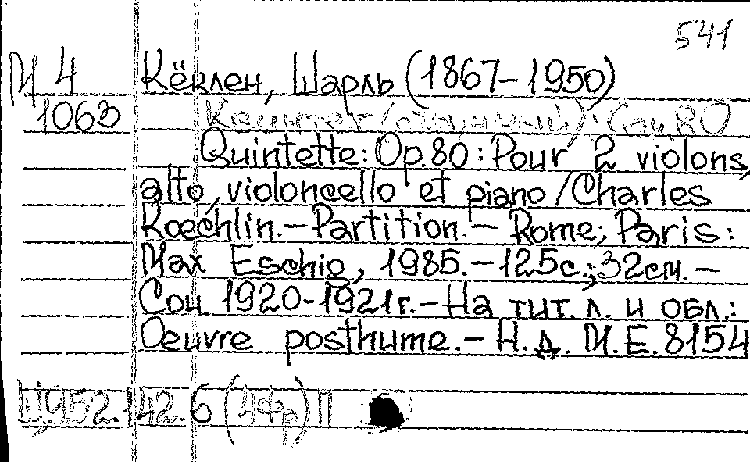 541
М 4 Кёклен, Шарль (1867-1950)
1063 Квинтет (фортепианный): Соч. 80
Quintette: Op.80: Pour 2 violons,
alto, violoncello et piano / Charles
Koechlin. - Partition. - Rome; Paris:
Max Eschig, 1985. - 125с.; 32см. -
Соч. 1920-1921г. - На тит. л. и обл.:
Oeuvre posthume. - Н. д. M.E. 8154
Ц952.142.6 (4Фр) П